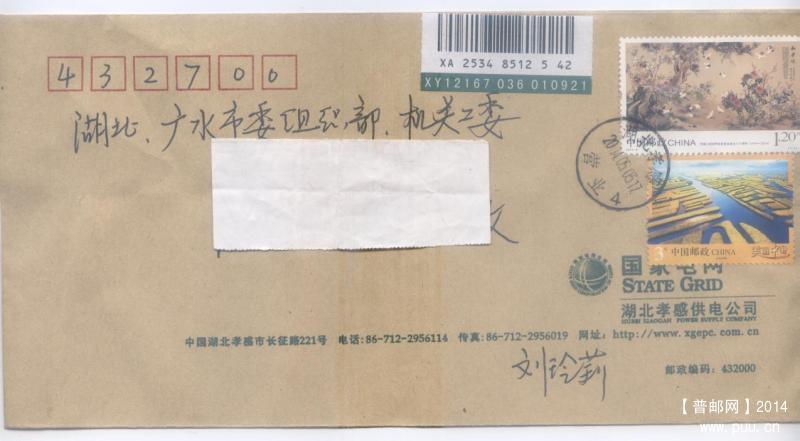 XA 2534 8512 5 42
XY12167 036 010921
432700
湖北、广水市委组织部、机关工委
中国邮政 CHINA
1.20
湖北孝感
营业
4
中国邮政 CHINA
美丽中国
国家电网
STATE GRID
湖北孝感供电公司
HUBEI XIAOGAN POWER SUPPLY COMPANY
中国湖北孝感市长征路221号 电话:86-712-2956114 传真:86-712-2956019 网址:http://www.xgepc.com.cn
刘玲莉
邮政编码:432000
【普邮网】2014
www.puu.cn